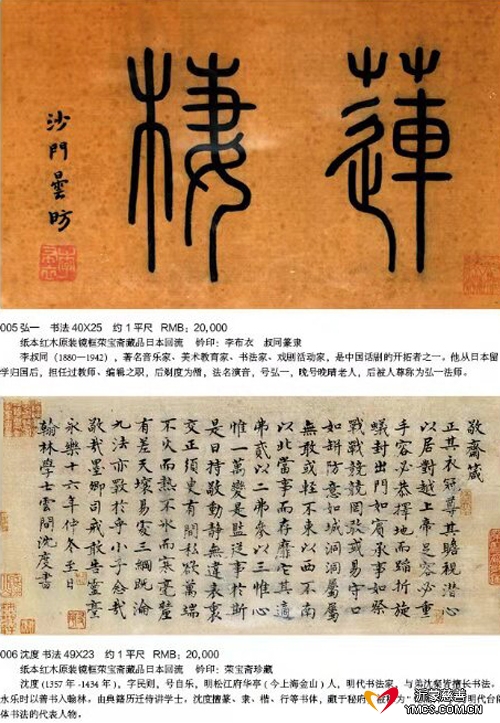 蓮棲
沙門曇昉
005 弘一 书法 40X25 约1平尺 RMB：20,000
纸本红木原装镜框荣宝斋藏品日本回流 钤印：李布衣 叔同篆隶
李叔同（1880—1942），著名音乐家、美术教育家、书法家、戏剧活动家，是中国话剧的开拓者之一。他从日本留
学归国后，担任过教师、编辑之职，后剃度为僧，法名演音，号弘一，晚号晚晴老人，后被人尊称为弘一法师。
敬齋箴
正其衣冠尊其瞻視潛心
以居對越上帝足容必重
手容必恭擇地而蹈折旋
蟻封出門如賓承事如祭
戰戰兢兢罔敢或易守口
如缾防意如城洞洞屬屬
無敢或輕不東以西不南
以北當事而存靡它其適
弗貳以二弗參以三惟心
惟一萬變是監從事於斯
是曰持敬動静無違表裏
交正須臾有間私欲萬端
不火而熱不冰而寒毫釐
有差天壤易處三綱既淪
九法亦斁於乎小子念哉
敬哉墨卿司戒敢告靈臺
永樂十六年仲冬至日
翰林學士雲間沈度書
006 沈度 书法 49X23 约1平尺 RMB：20,000
纸本红木原装镜框荣宝斋藏品日本回流 钤印：荣宝斋珍藏
沈度（1357年-1434年），字民则，号自乐，明松江府华亭（今上海金山）人，明代书法家，与弟沈粲皆擅长书法。
永乐时以善书入翰林。由典籍历迁侍讲学士，沈度擅篆、隶、楷、行等书体，藏于秘府，被称为 明代台阁
体书法的代表人物。
派家慈善
YMCS.COM.CN